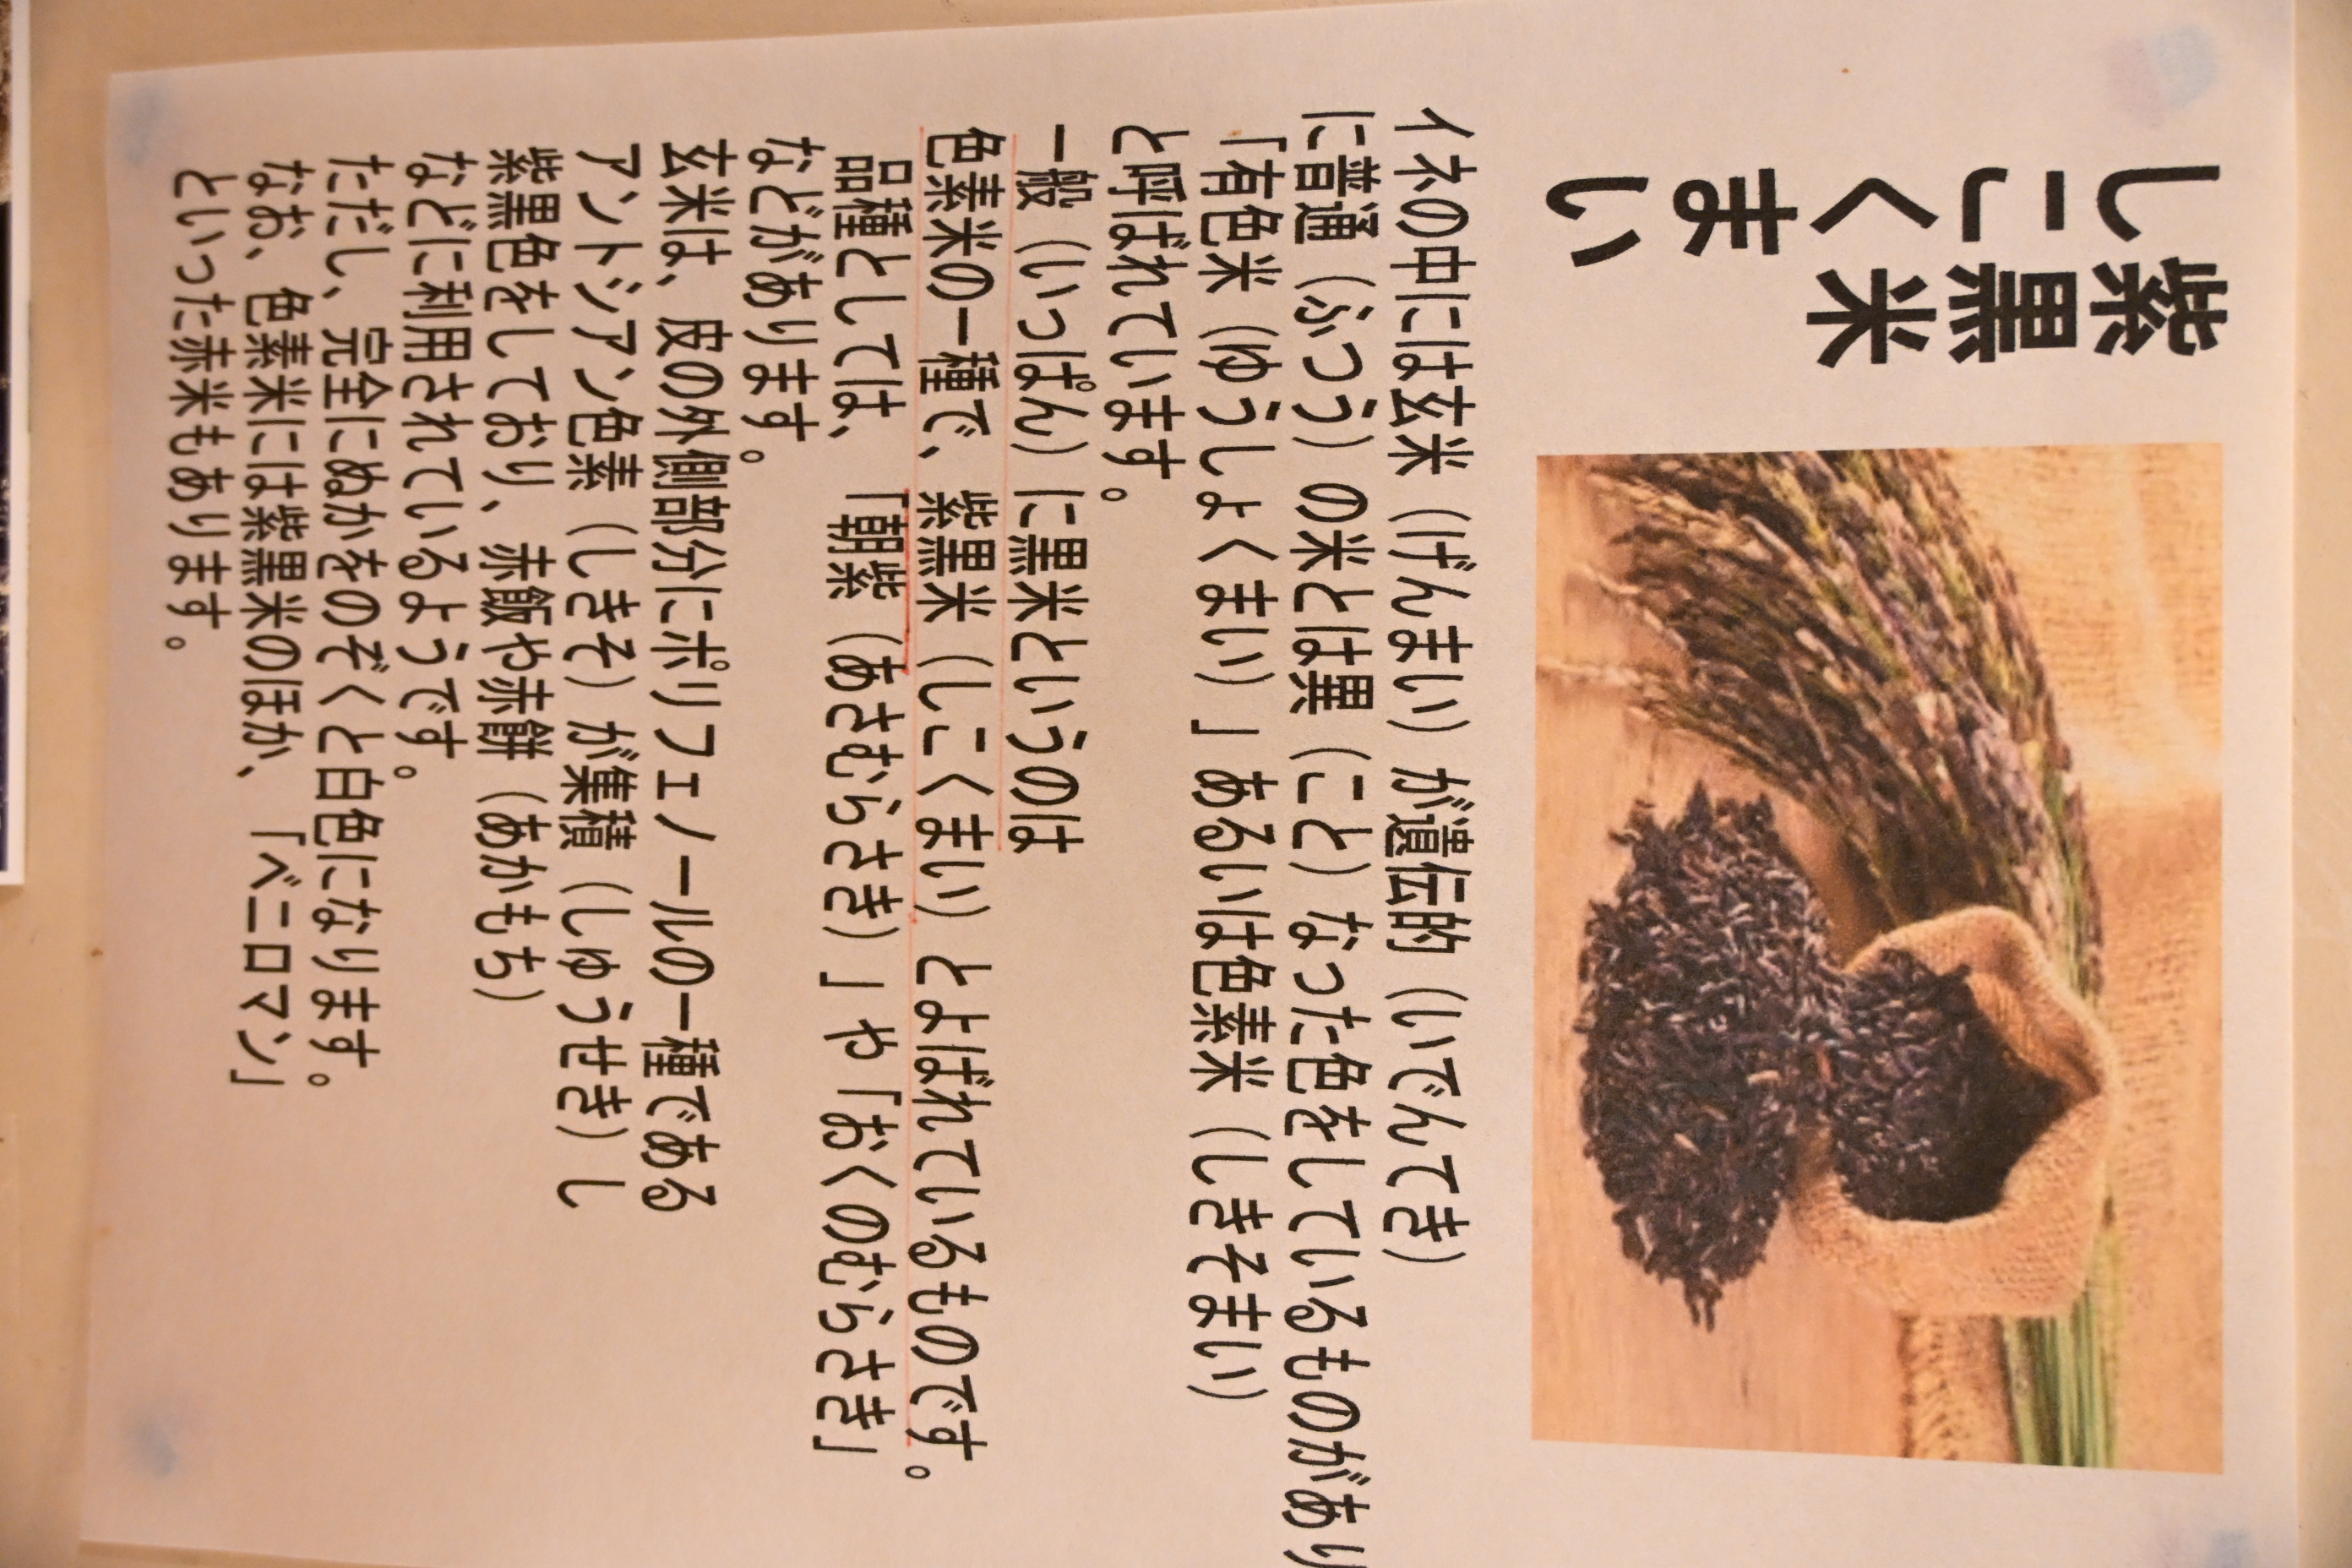 しこくまい
紫黒米
イネの中には玄米（げんまい）が遺伝的（いでんてき）
に普通（ふつう）の米とは異（こと）なった色をしているものがあり
「有色米（ゆうしょくまい）」あるいは色素米（しきそまい）
と呼ばれています。
一般（いっぱん）に黒米というのは
色素米の一種で、紫黒米（しこくまい）とよばれているものです。
品種としては、「朝紫（あさむらさき）」や「おくのむらさき」
などがあります。
玄米は、皮の外側部分にポリフェノールの一種である
アントシアン色素（しきそ）が集積（しゅうせき）し
紫黒色をしており、赤飯や赤餅（あかもち）
などに利用されているようです。
ただし、完全にぬかをのぞくと白色になります。
なお、色素米には紫黒米のほか、「ベニロマン」
といった赤米もあります。